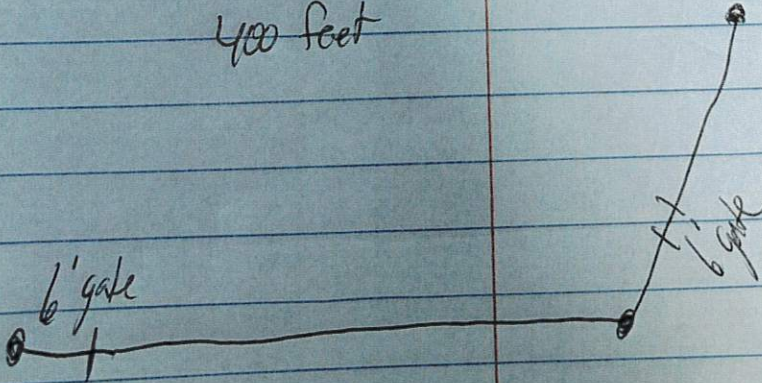 400 feet
6' gate
6' gate